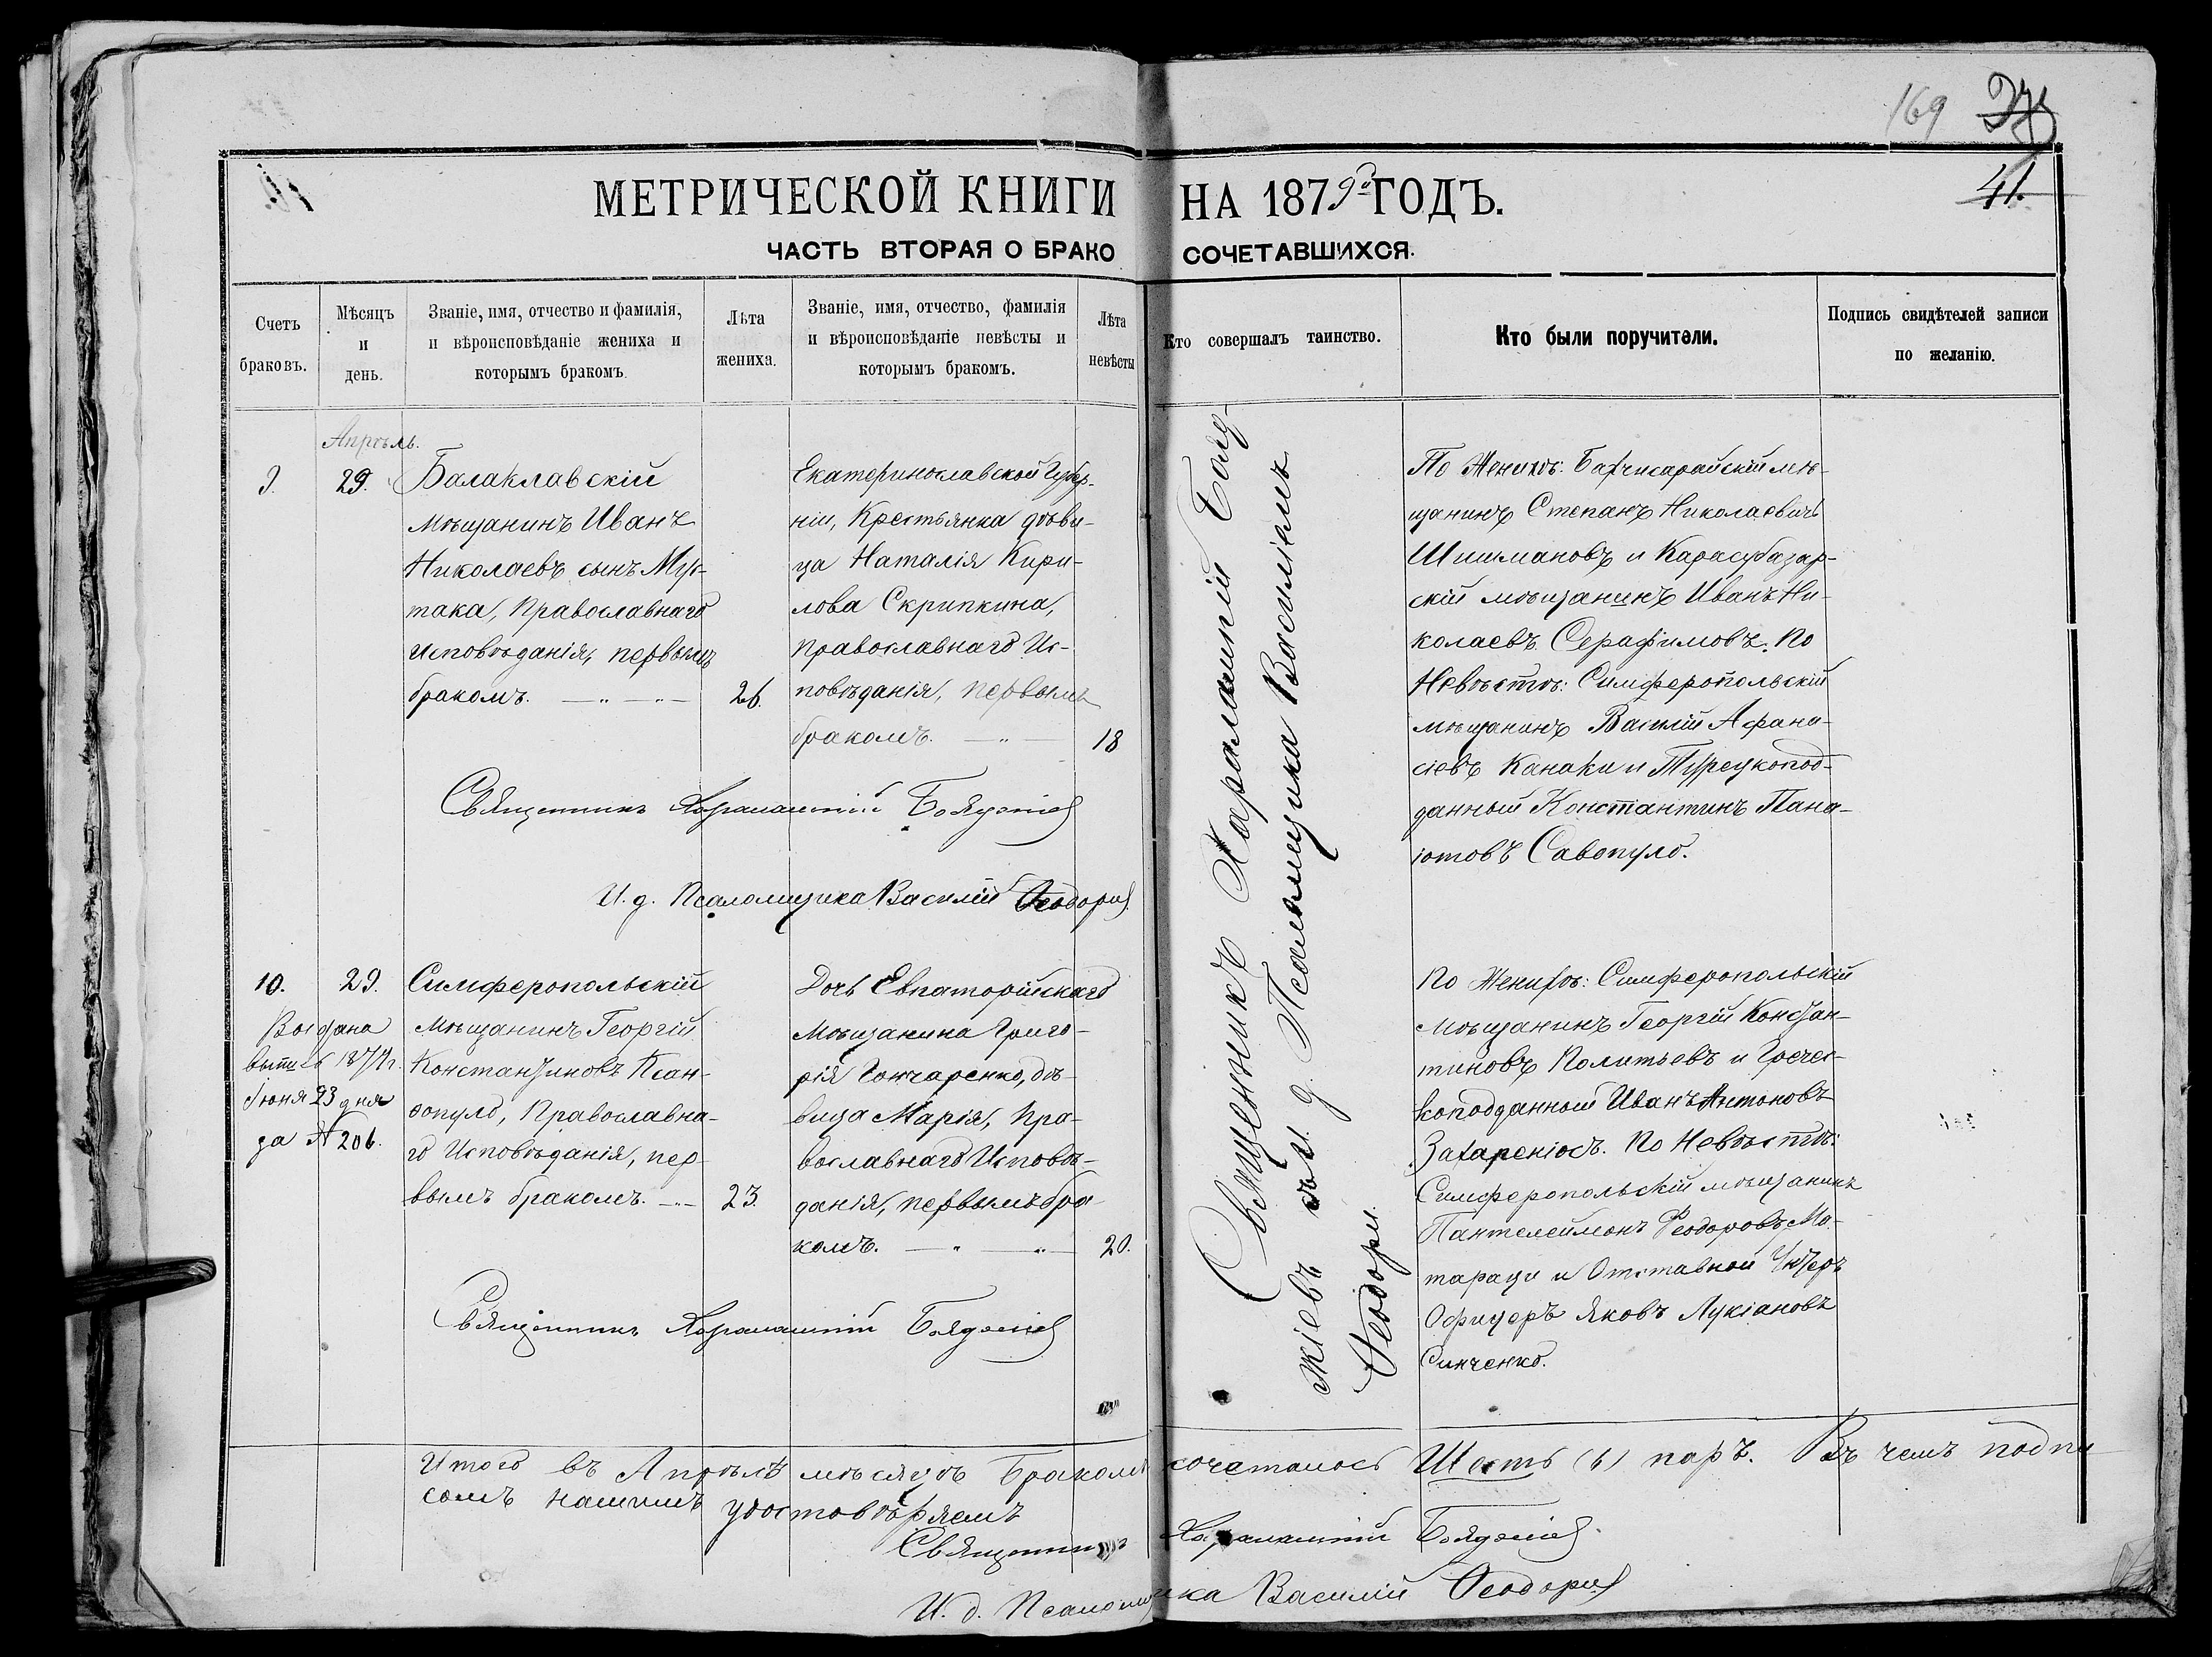 169 37
41.
МЕТРИЧЕСКОЙ КНИГИ НА 1879й ГОДЪ.
ЧАСТЬ ВТОРАЯ О БРАКОСОЧЕТАВШИХСЯ.
Счетъ браковъ.
Мѣсяцъ и день.
Званіе, имя, отчество и фамилія,
и вѣроисповѣданіе жениха и
которымъ бракомъ.
Лѣта жениха.
Званіе, имя, отчество, фамилія
и вѣроисповѣданіе невѣсты и
которымъ бракомъ.
Лѣта невѣсты
Кто совершалъ таинство.
Кто были поручители.
Подпись свидѣтелей записи
по желанію.
Апрѣль.
9.
29.
Балаклавскій
мѣщанинъ Иванъ
Николаевъ сынъ Мус-
така, Православнаго
Исповѣданія, первымъ
бракомъ.
26.
Екатеринославской Губер-
ніи, Крестьянка дѣви-
ца Наталія Кири-
лова Скрипкина,
Православнаго Ис-
повѣданія, первымъ
бракомъ.
18
Священникъ Харалампій Бояджіев
И. д. Псаломщика Василій Ѳеодори
Священникъ Харалампій Бояд-
жіевъ съ И. д. Псаломщика Василіемъ
Ѳеодори.
По Женихѣ: Бахчисарайскій мѣ-
щанинъ Степанъ Николаевичъ
Шишмановъ и Карасубазар-
скій мѣщанинъ Иванъ Ни-
колаевъ Серафимовъ. По
Невѣстѣ: Симферопольскій
мѣщанинъ Василій Афана-
сіевъ Канаки и Турецкопод-
данный Константинъ Пана-
іотовъ Савопуло.
10.
29.
Выдана
выпись 1879 г.
Іюня 23 дня
за № 206.
Симферопольскій
Мѣщанинъ Георгій
Константиновъ Ксан-
допуло, Православна-
го Исповѣданія, пер-
вымъ бракомъ.
23.
Дочь Евпаторійскаго
Мѣщанина Григо-
рія Гончаренко, дѣ-
вица Марія, Пра-
вославнаго Исповѣ-
данія, первымъ бра-
комъ.
20.
Священникъ Харалампій Бояджіев
По Женихѣ: Симферопольскій
Мѣщанинъ Георгій Констан-
тиновъ Политьевъ и Гречес-
коподданный Иванъ Антоновъ
Захареніосъ. По Невѣстѣ:
Симферопольскій мѣщанинъ
Пантелеймонъ Ѳеодоровъ Ма-
тараци и Отставной Унтеръ
Офицеръ Яковъ Лукіановъ
Синченко.
Итого въ Апрѣлѣ мѣсяцѣ Бракомъ сочеталось Шесть (6) паръ. Въ чемъ подпи
сомъ нашимъ удостовѣряемъ
Священникъ Харалампій Бояджіев
И. д. Псаломщика Василій Ѳеодори